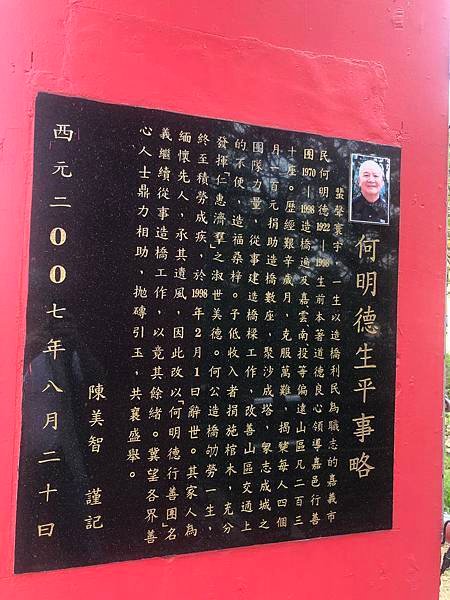 何明德生平事略
蜚聲寰宇,一生以造橋利民為職志的嘉義市
民何明德1922—1998生前本著道德良心領導嘉邑行善
團1970—1998造橋遍及嘉雲南投等偏遠山區凡二百三
十座。歷經艱辛歲月,克服萬難,揭櫫每人四個
月一百元捐助造橋數座,聚沙成塔,眾志成城之
團隊力量,從事建造橋樑工作,改善山區交通上
的不便,造福桑梓。子低收入者捐施棺木,充分
發揮「仁惠濟羣」之淑世美德。何公造橋劬勞一生,
終至積勞成疾,於1998年2月1日辭世。其家人為
緬懷先人,承其遺風,因此改以「何明德行善團」名
義繼續從事造橋工作,以竟其餘緒。冀望各界善
心人士鼎力相助,拋磚引玉,共襄盛舉。
陳美智 謹記
西元二00七年八月二十日